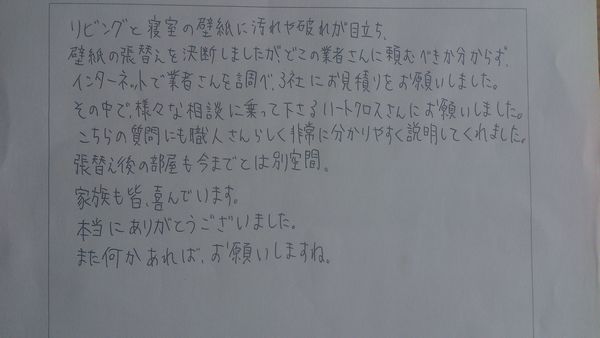 リビングと寝室の壁紙に汚れや破れが目立ち、
壁紙の張替えを決断しましたが、どこの業者さんに頼むべきか分からず、
インターネットで業者さんを調べ、3社にお見積りをお願いしました。
その中で、様々な相談に乗って下さるハートクロスさんにお願いしました。
こちらの質問にも職人さんらしく非常に分かりやすく説明してくれました。
張替え後の部屋も今までとは別空間。
家族も皆、喜んでいます。
本当にありがとうございました。
また何かあれば、お願いしますね。